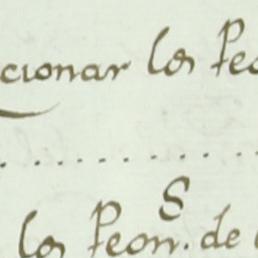 cionar los Peo
S
los Peon. de